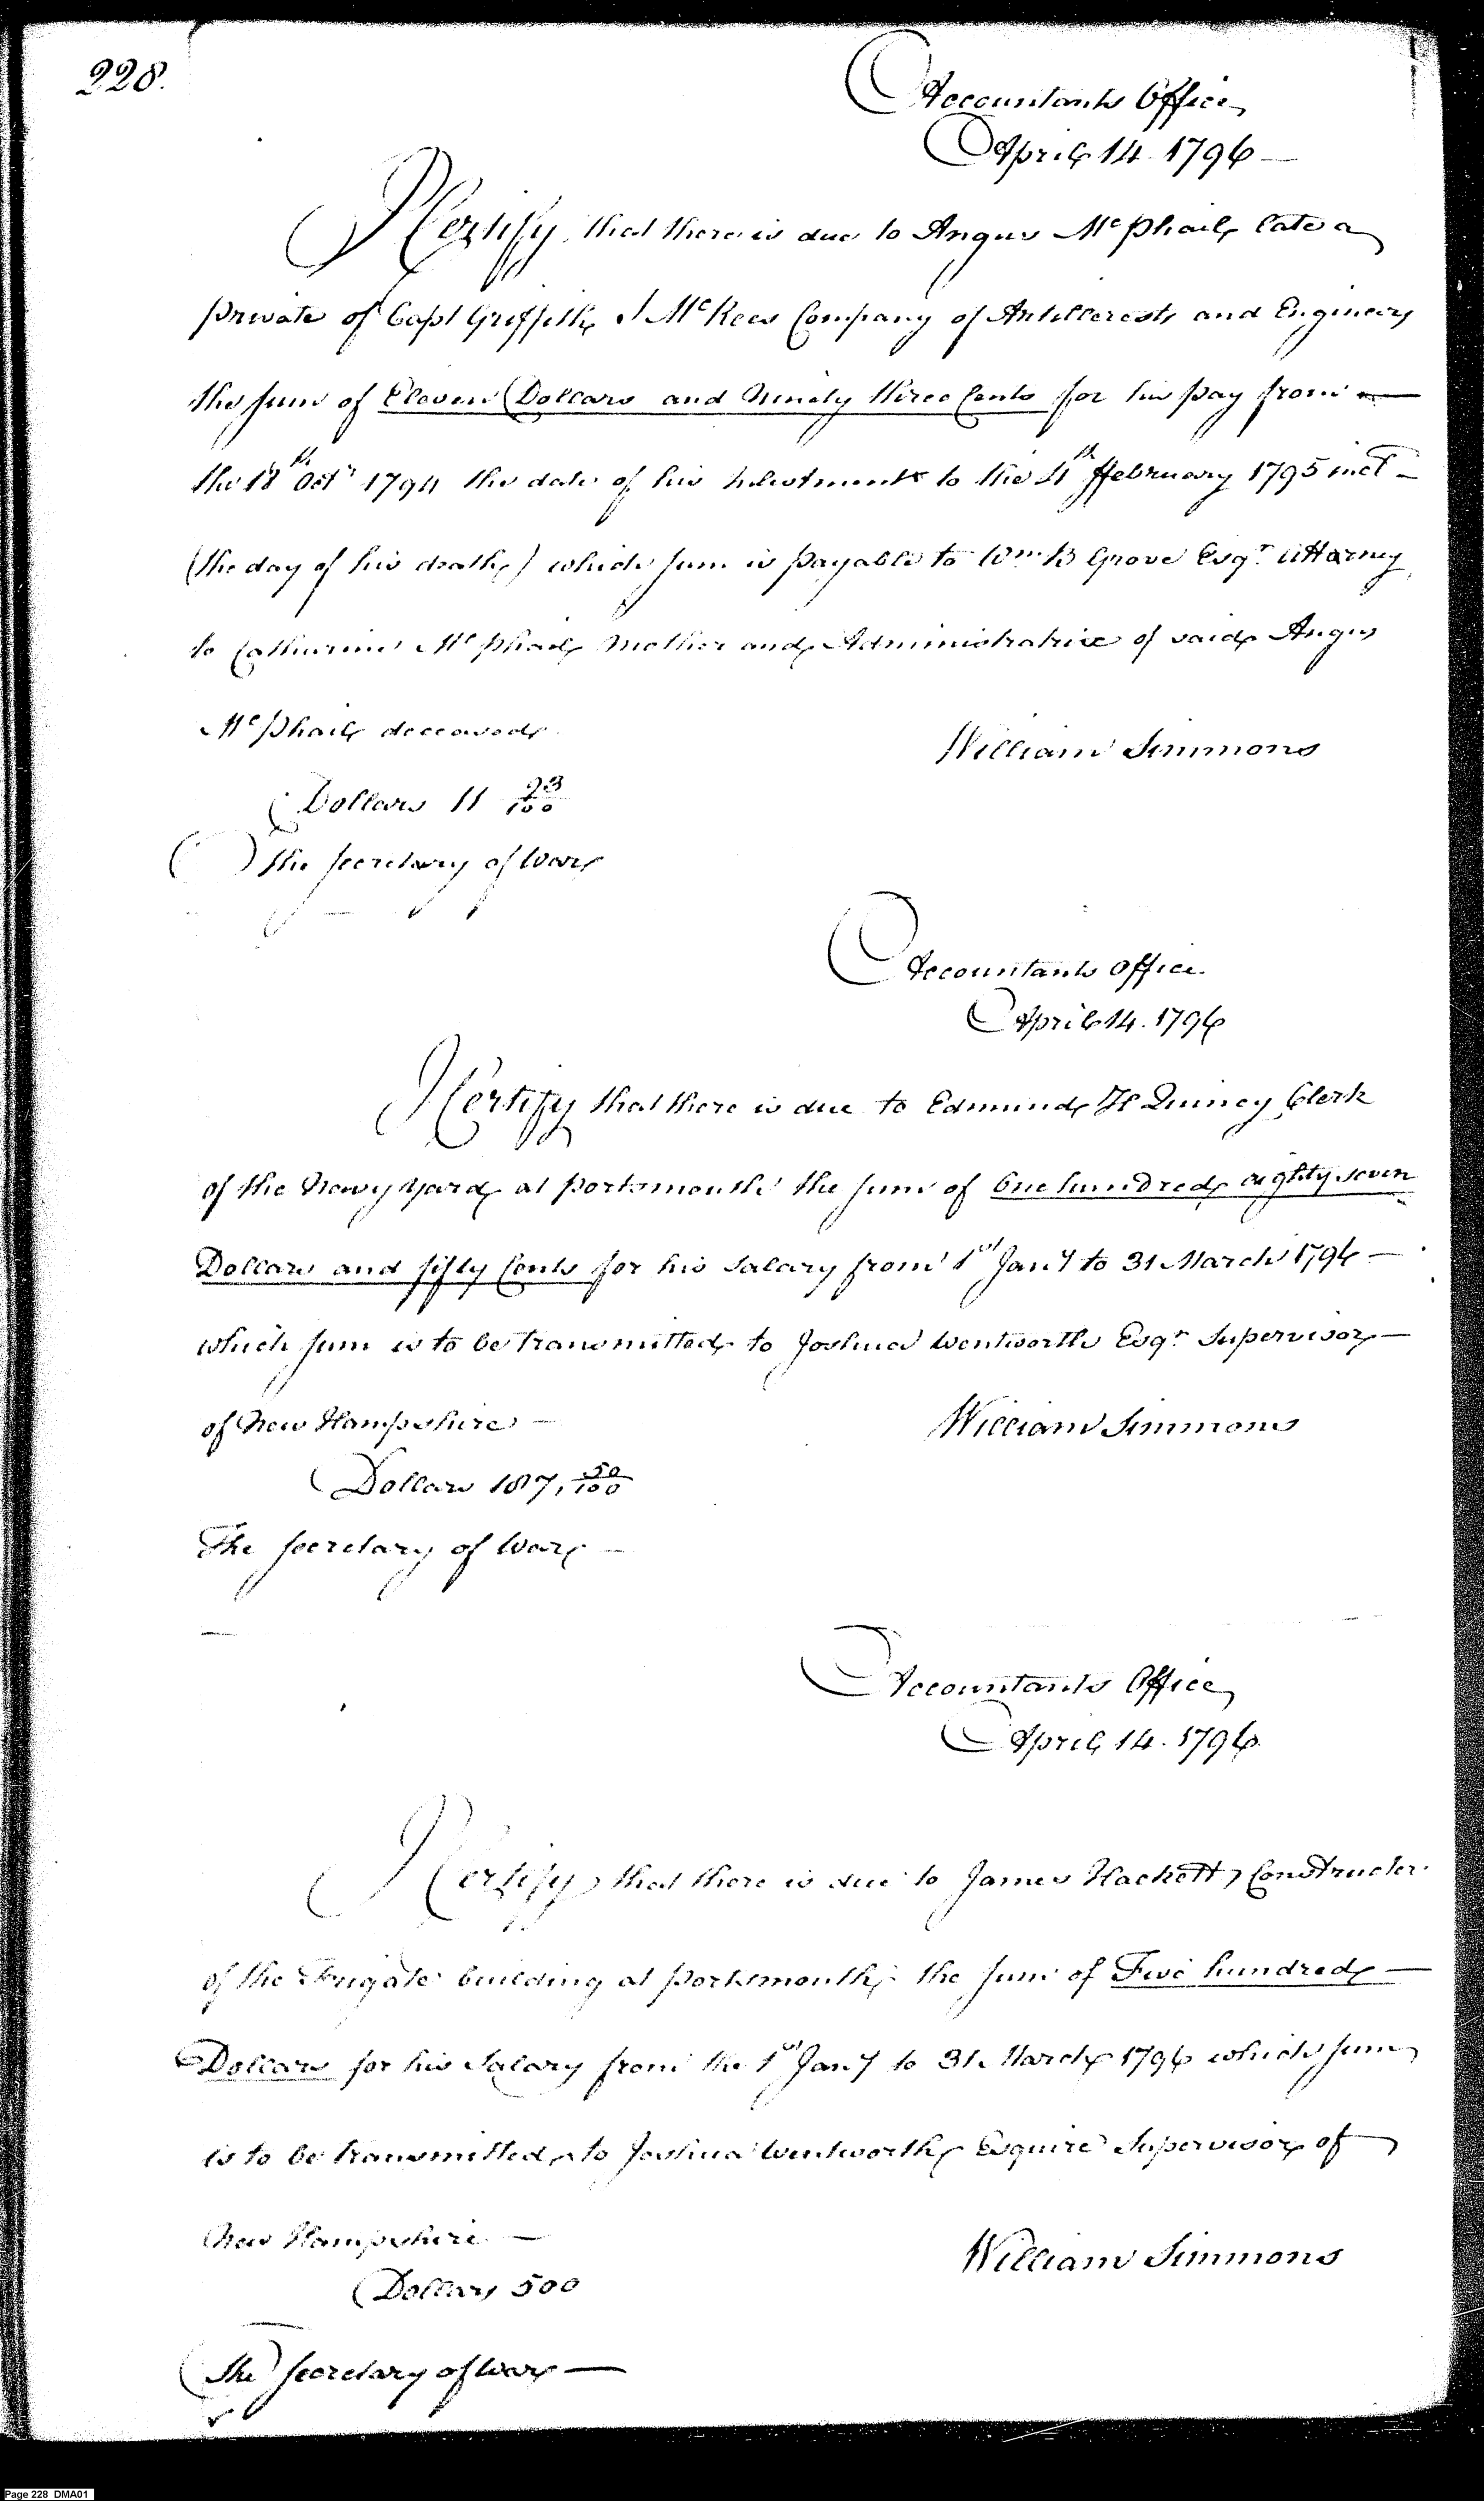 228.
Accountants Office
April 14. 1796
I Certify that there is due to Angus McPhail late a
private of Capt Griffith J McRees Company of Artillerests and Engineers
the sum of Eleven Dollars and Ninety three Cents for his pay from
the 18th Octr 1794 the date of his Inlistment to the 4th February 1795 inct
(the day of his death) which sum is payable to Wm B Grove Esqr. Attorney
to Catherine McPhail Mother and Administratrix of said Angus
McPhail deceased
William Simmons
Dollars 11 93/100
The Secretary of War
Accountants Office.
April 14. 1796
I Certify that there is due to Edmund H Quincy Clerk
of the Navy Yard at Portsmouth the sum of One hundred eighty seven
Dollars and fifty Cents for his Salary from 1st Jany to 31 March 1796
which sum is to be transmitted to Joshua Wentworth Esqr Supervisor
of New Hampshire
William Simmons
Dollars 187, 50/100
The Secretary of War
Accountants Office
April 14. 1796
I Certify that there is due to James Hackett Constructer
of the Frigate building at Portsmouth, the sum of Five hundred
Dollars for his Salary from the 1st Jany to 31 March 1796 which sum
is to be transmitted to Joshua Wentworth Esquire Supervisor of
New Hampshire
William Simmons
Dollars 500
The Secretary of War
Page 228 DMA01